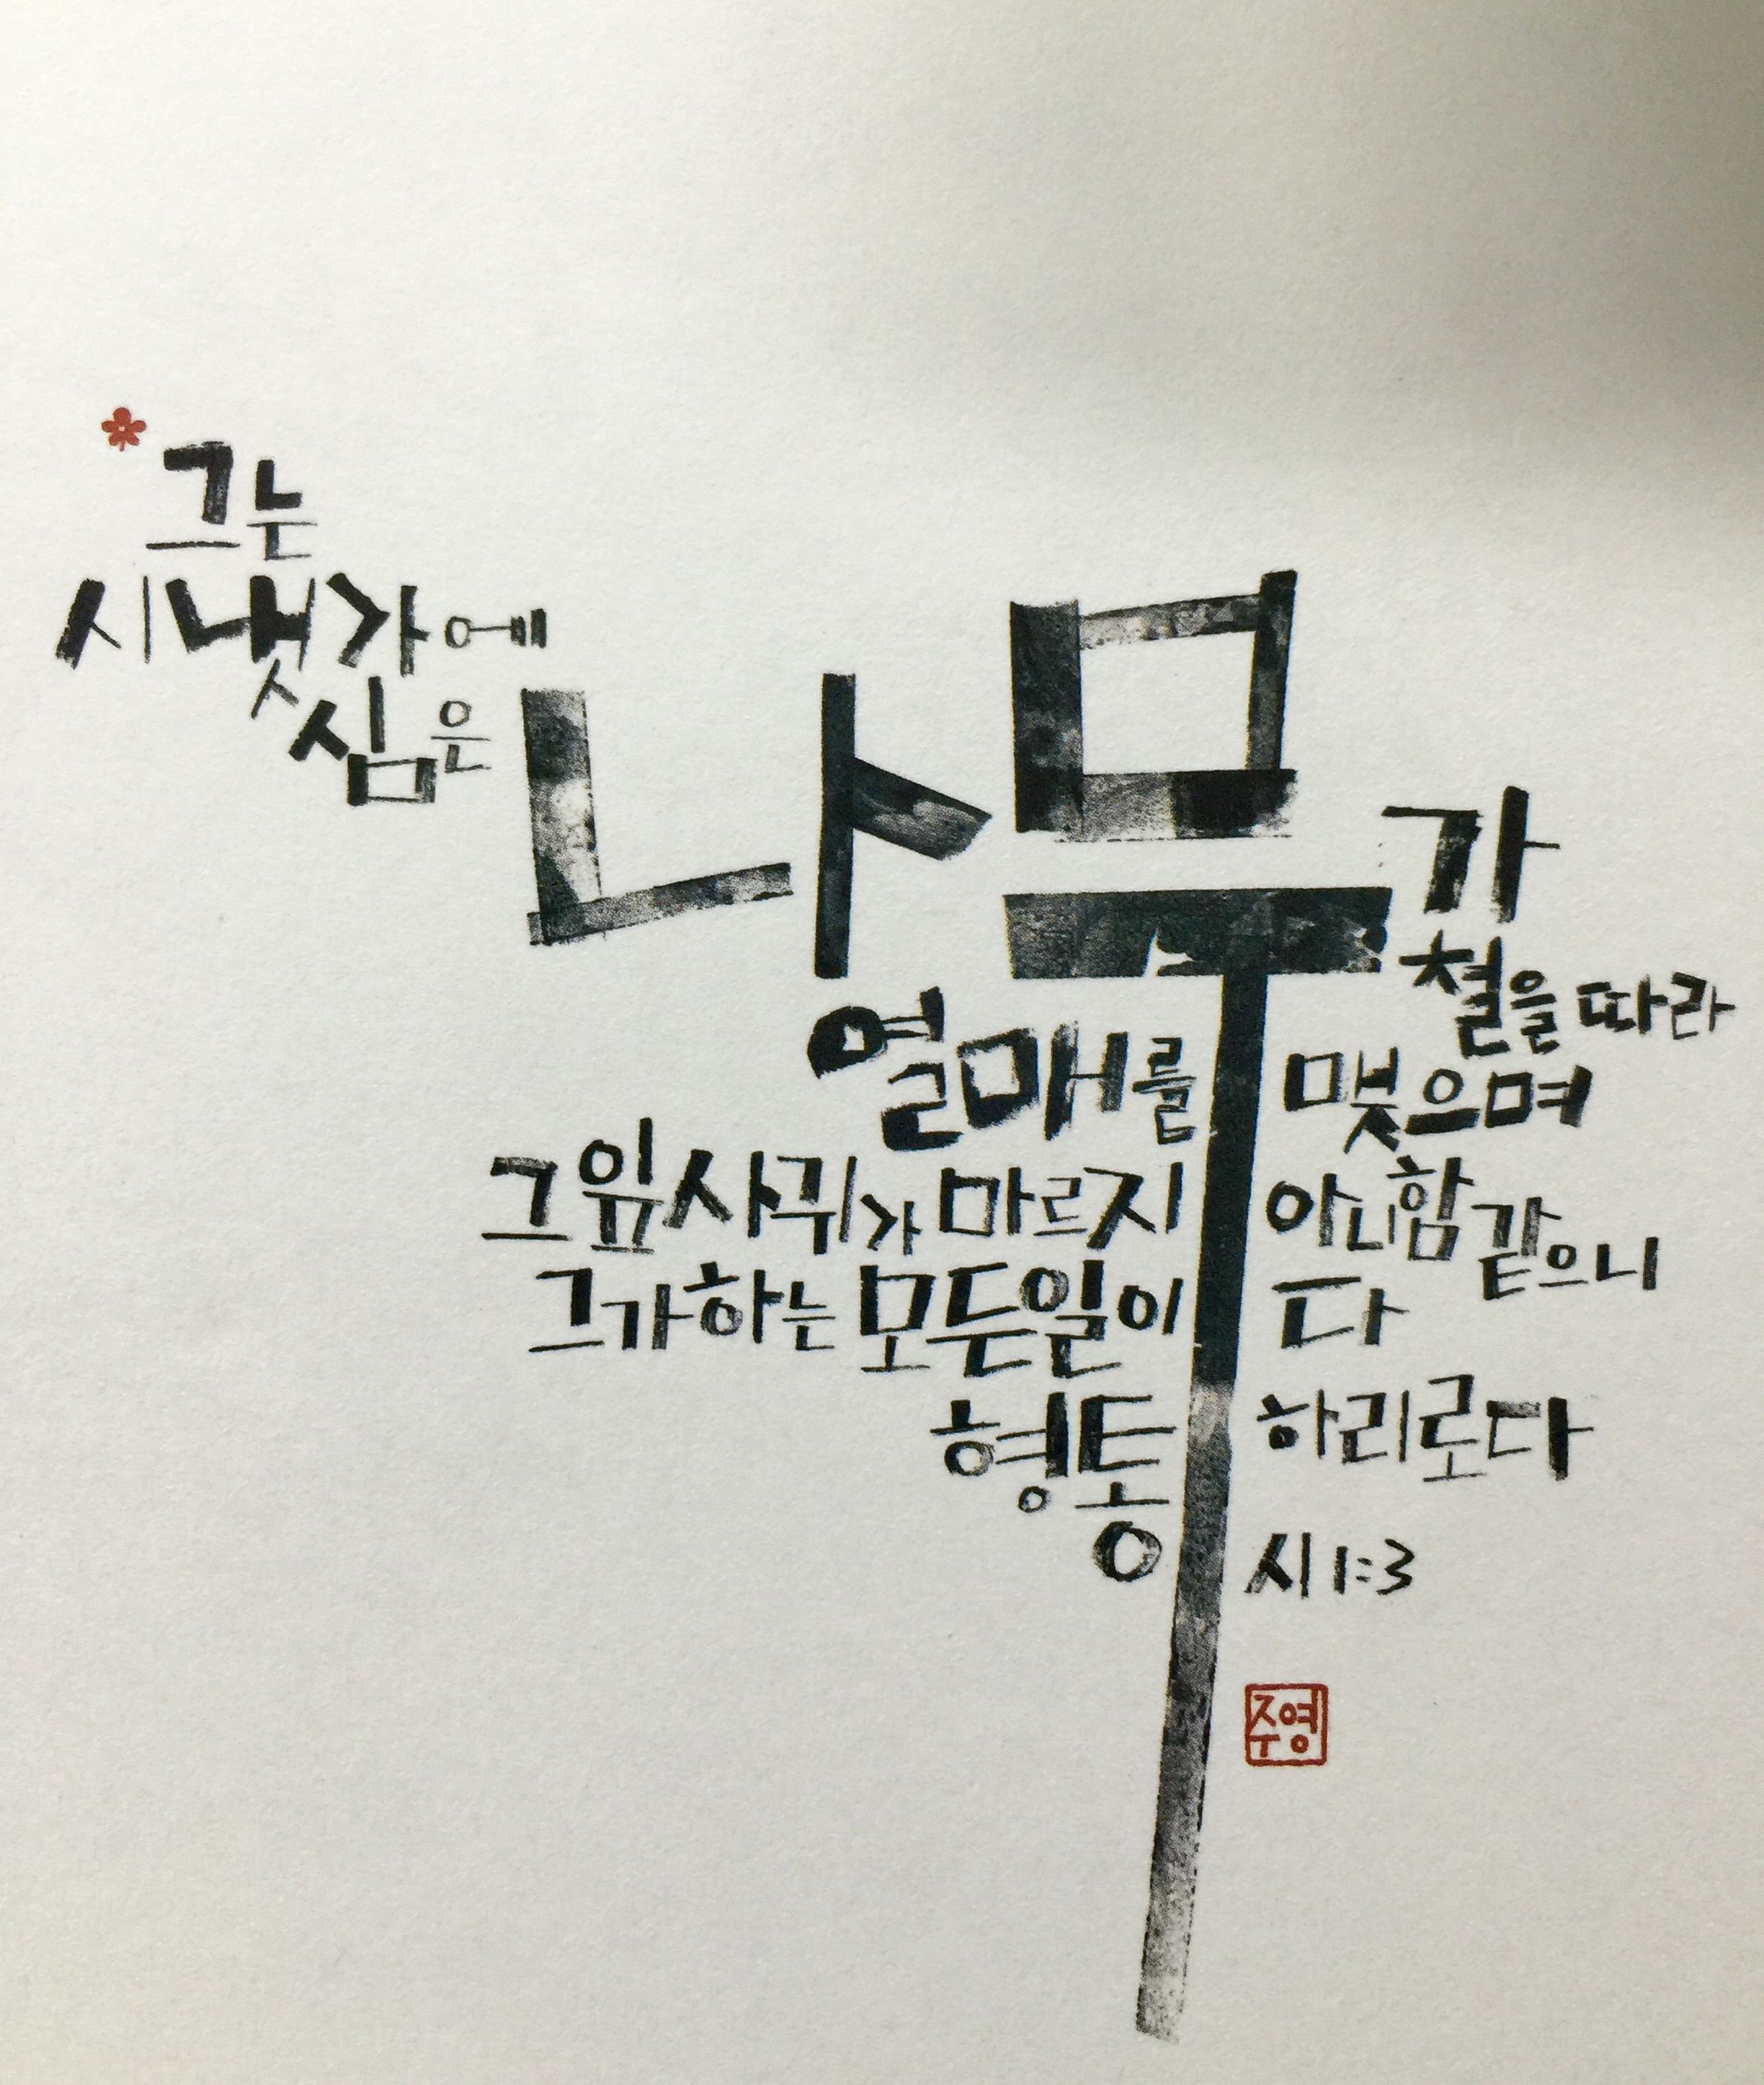 그는
시냇가에
심은
나무가
철을 따라
열매를 맺으며
그 잎사귀가 마르지 아니함 같으니
그가 하는 모든 일이 다
형통하리로다
시 1:3
주영